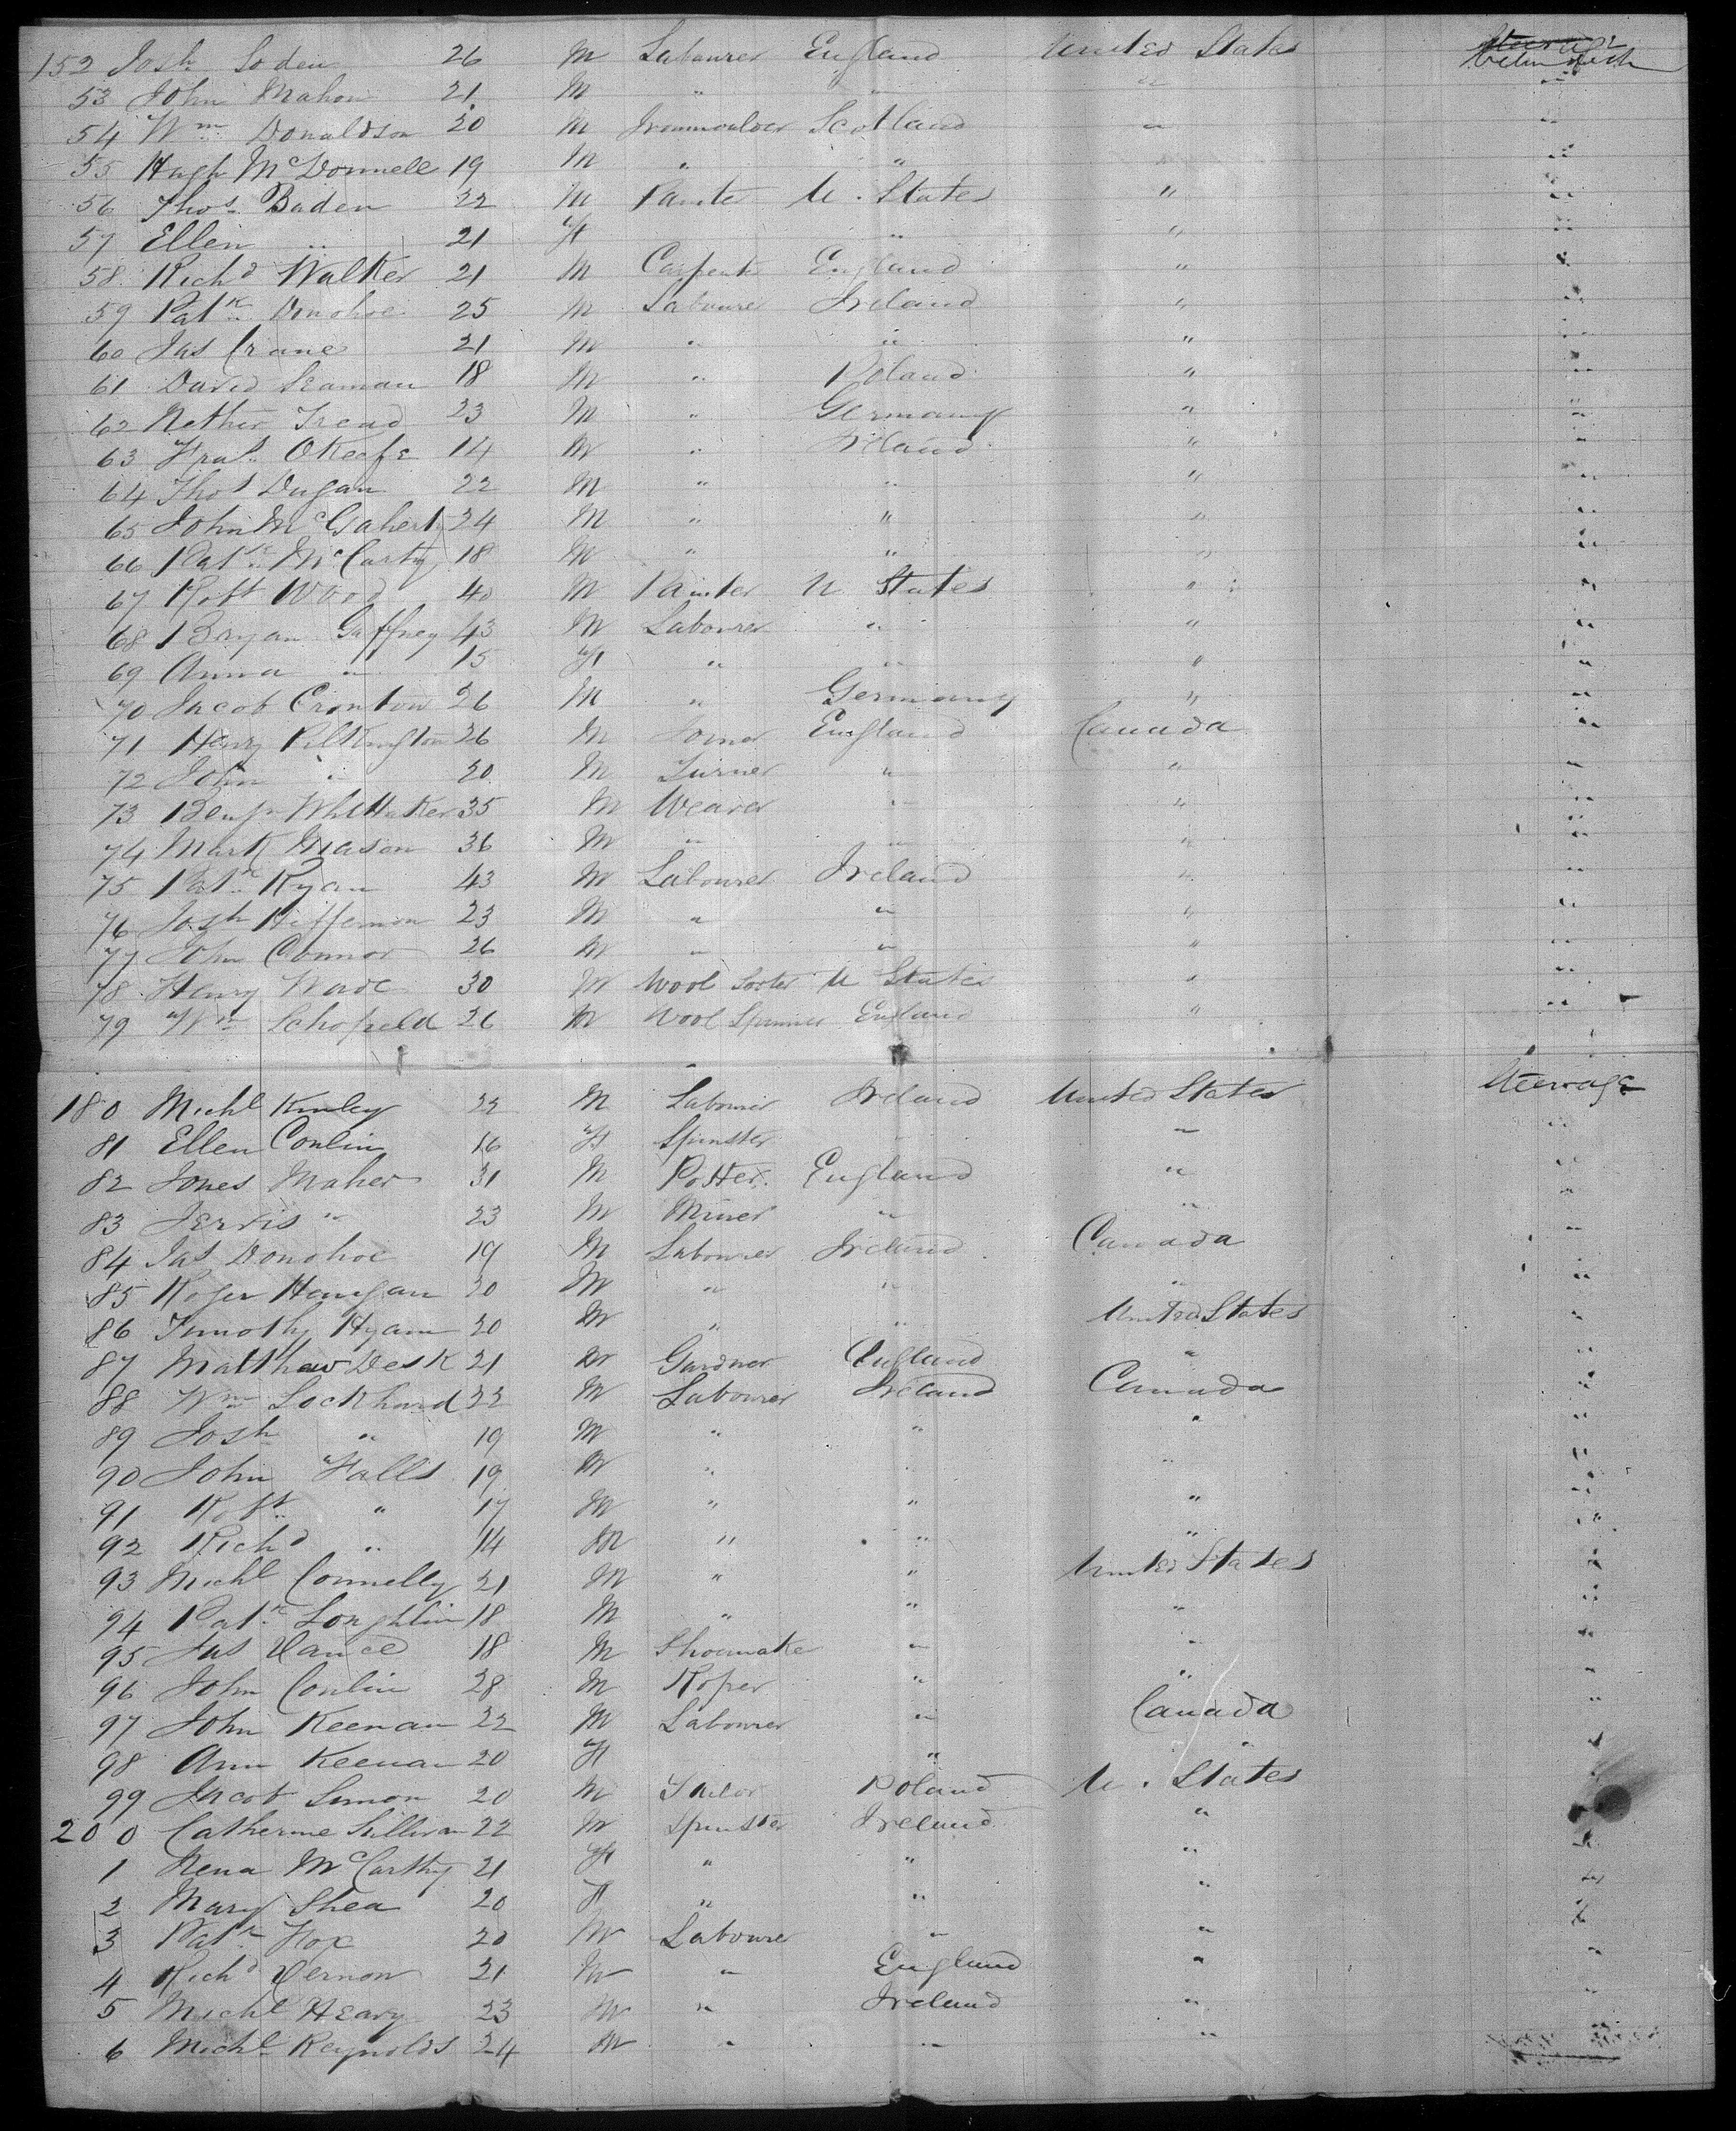 152 Josh Soden 26 M Labourer England United States Between Deck
53 John Mahon 21 M " " " "
54 Wm Donaldson 20 M Ironmoulder Scotland " "
55 Hugh McDonnell 19 M " " " "
56 Thos Baden 22 M Painter U. States " "
57 Ellen " 21 F " " "
58 Richd Walker 21 M Carpenter England " "
59 Patk Donohoe 25 M Labourer Ireland " "
60 Jas Crane 21 M " " " "
61 David Seaman 18 M " Poland " "
62 23 M " Germany " "
63 OKeefe 14 M " Ireland " "
64 Thos Dugan 22 M " " " "
65 John McGaherty 24 M " " " "
66 Patk McCarty 18 M " " " "
67 Robt Wood 40 M Painter U States " "
68 Bryan Gaffney 43 M Labourer " " "
69 Anna " 15 F " " " "
70 Jacob Cronton 26 M " Germany " "
71 Henry Pilkington 26 M Joiner England Canada "
72 John " 20 M Turner " " "
73 Benjn Whittaker 35 M Weaver " " "
74 Mark Mason 36 M " " " "
75 Patk Ryan 43 M Labourer Ireland " "
76 Josh Hiffernon 23 M " " " "
77 John Connor 26 M " " " "
78 Henry Wade 30 M Wool Sorter U States " "
79 Wm Schofield 26 M Wool Spinner England " "
180 Michl Kinley 22 M Labourer Ireland United States Steerage
81 Ellen Conlin 16 F Spinster " " "
82 Jones Maher 31 M Potter England " "
83 Jervis " 23 M Miner " " "
84 Jas Donohoe 19 M Labourer Ireland Canada "
85 Roger Hanigan 20 M " " " "
86 Timothy Hyam 20 M " " United States "
87 Matthew Desk 21 M Gardner England " "
88 Wm Lockhard 22 M Labourer Ireland Canada "
89 Josh " 19 M " " " "
90 John Falls 19 M " " " "
91 Robt " 17 M " " " "
92 Richd " 14 M " " " "
93 Michl Connelly 21 M " " United States "
94 Patk Loughlin 18 M " " " "
95 Jas Vance 18 M Shoemaker " " "
96 John Conlin 28 M Roper " " "
97 John Keenan 22 M Labourer " Canada "
98 Ann Keenan 20 F " " "
99 Jacob Simon 20 M Tailor Poland U. States "
200 Catherine Sullivan 22 M Spinster Ireland " "
1 Nena McCarthy 21 F " " " "
2 Mary Shea 20 F " " " "
3 Patk Fox 20 M Labourer " " "
4 Richd Vernon 21 M " England " "
5 Michl Heavy 23 M " Ireland " "
6 Michl Reynolds 24 M " " " "